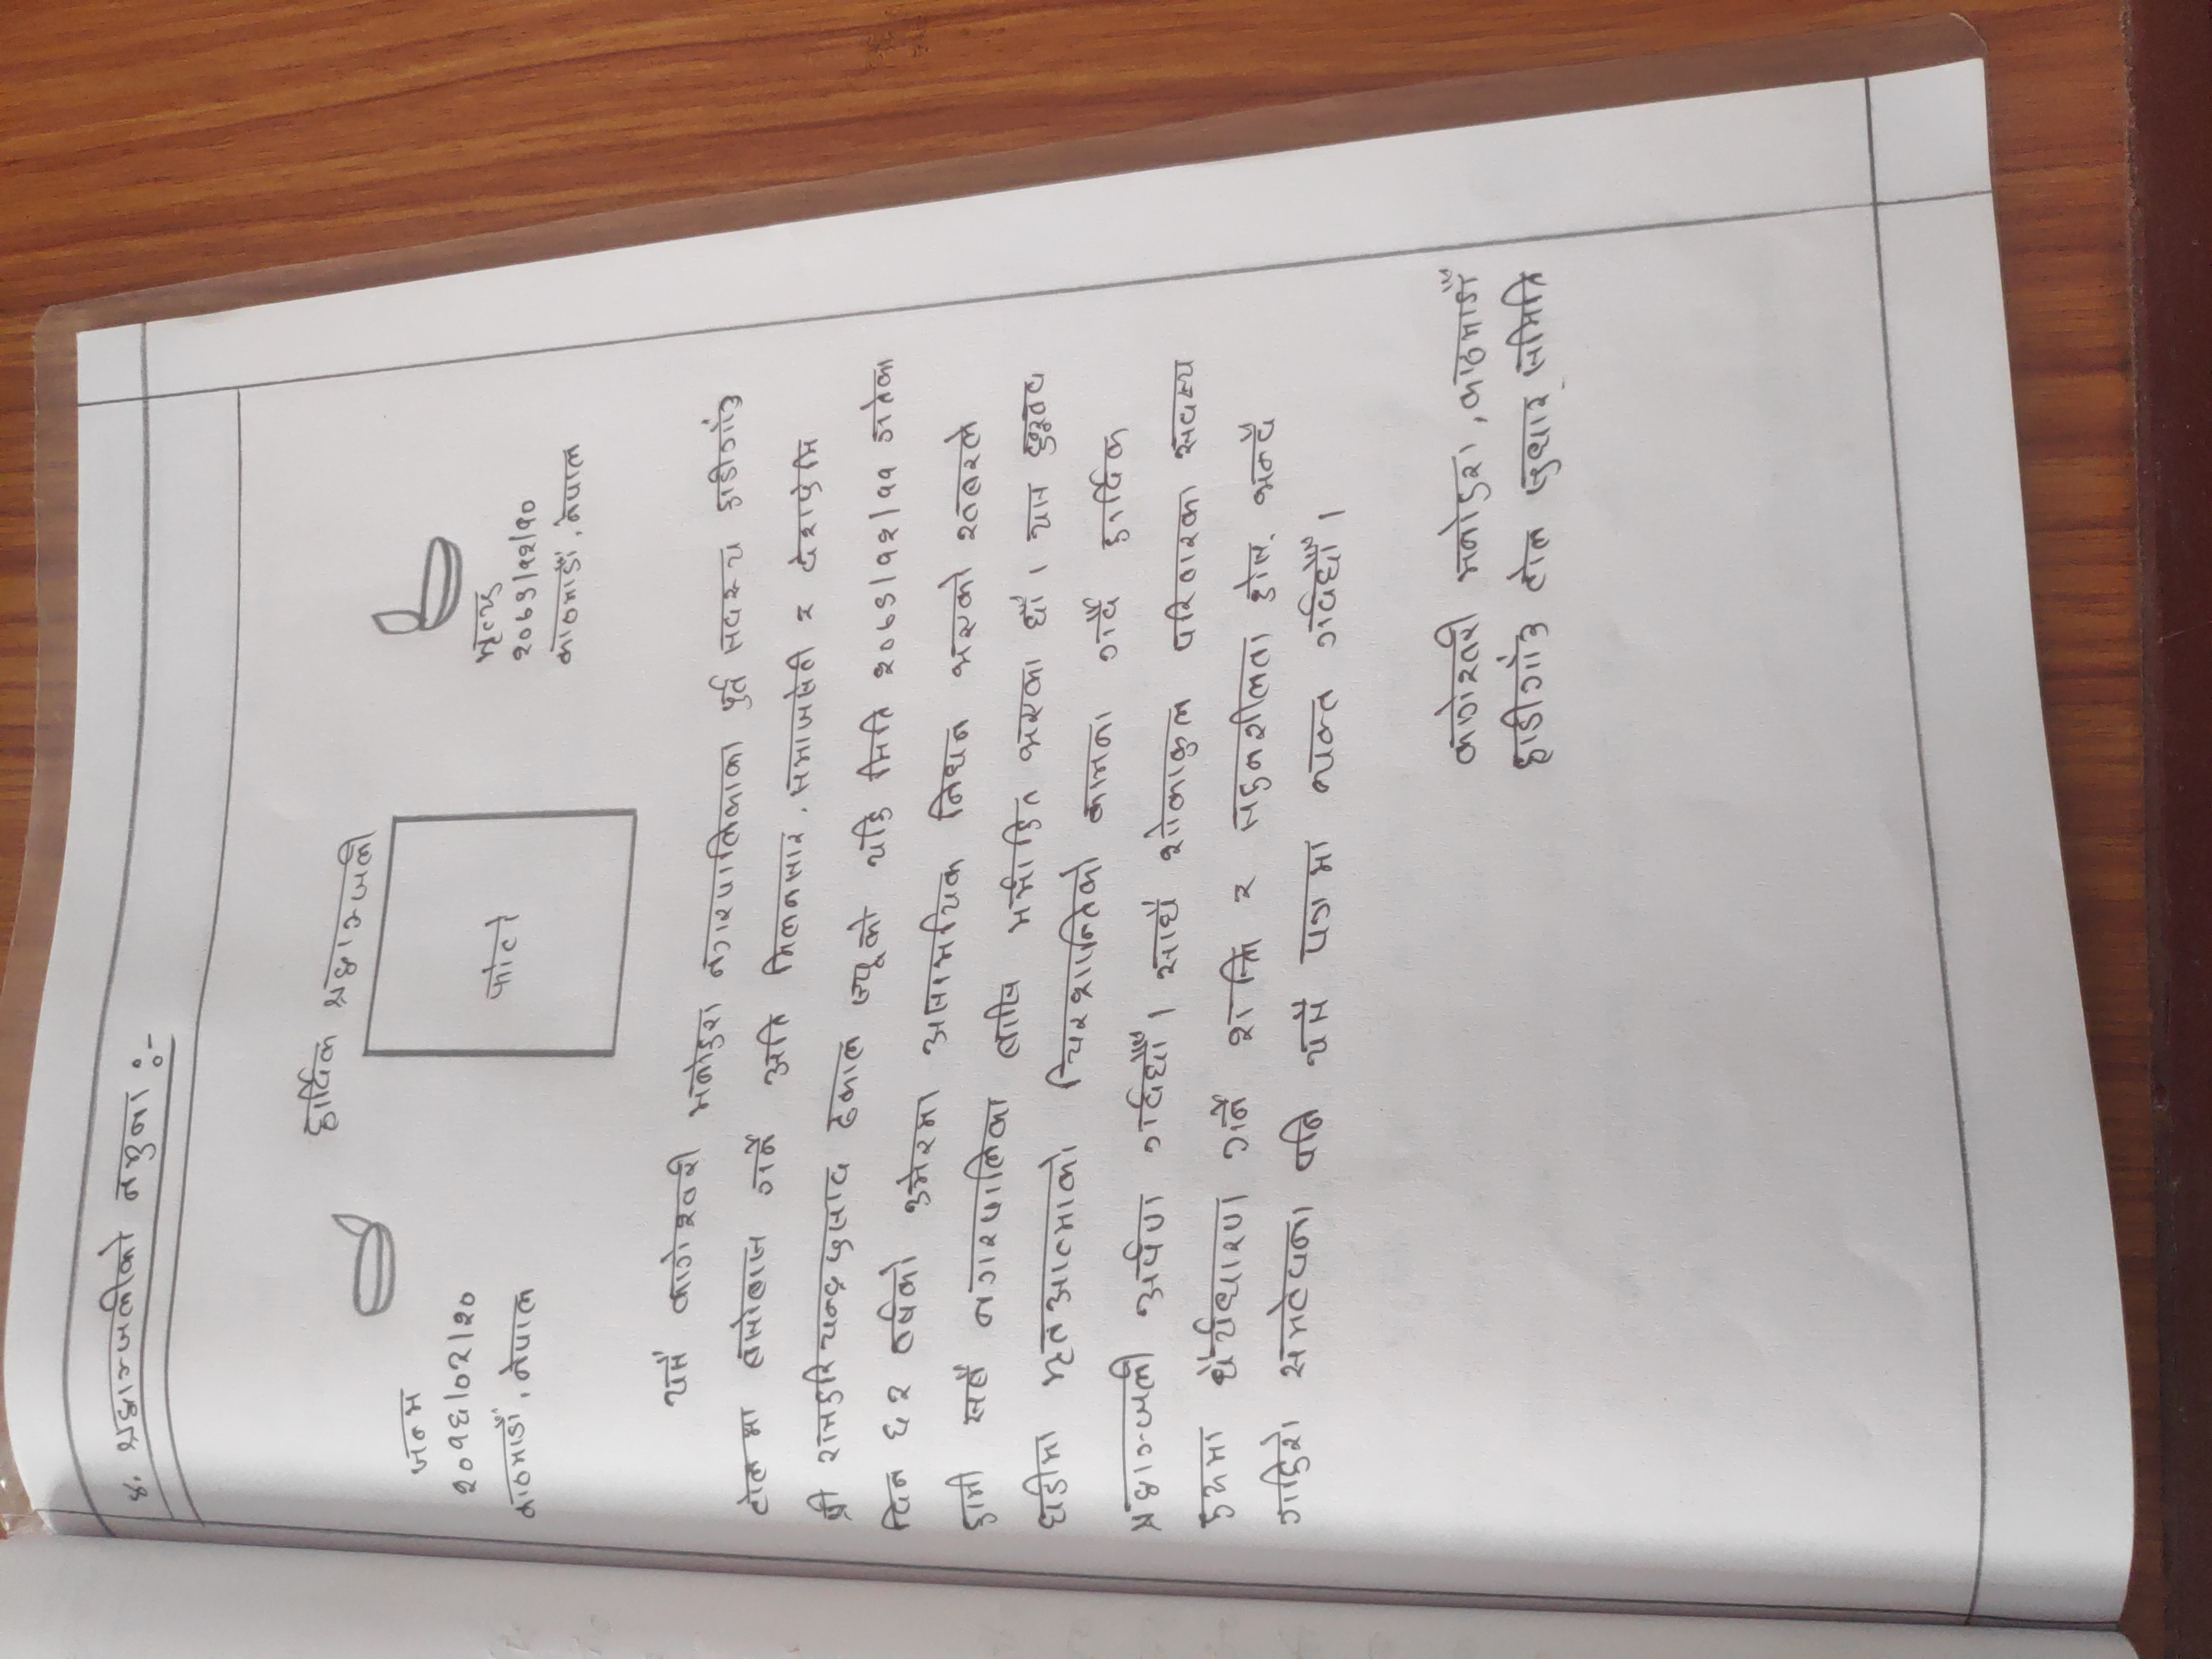 ४. श्रद्धाञ्जलीको नमुना :-
हार्दिक श्रद्धाञ्जली
जन्म
२०१६/०२/२०
काठमाडौं, नेपाल
फोटो
मृत्यु
२०७९/१२/१०
काठमाडौं, नेपाल
यसै कागेश्वरी मनोहरा नगरपालिकाका पुर्व सदस्य हाडीगाँउ
टोलमा बसोबास गर्ने अति मिलनसार, समाजसेवी र देशप्रेमि
श्री रामहरिचन्द्रप्रसाद ढकाल ज्यूको यहि मिति २०७९/१२/११ गतेका
दिन ६२ वर्षको उमेरमा असामयिक निधन भएको खबरले
हामी सबै नगरपालिका बासि मर्माहित भएका छौं । यस दुःखद
घडीमा मृतआत्माको चिरशान्तिको कामना गर्दै हार्दिक
श्रद्धाञ्जली अर्पण गर्दछौँ । साथै शोकाकुल परिवारका सदस्य
हरुमा धैर्यधारण गर्ने शक्ति र सहनशीलता होस् भन्दै
गहिरो समवेदना पनि यसै पत्रमा व्यक्त गर्दछौँ ।
कागेश्वरी मनोहरा, काठमाडौँ
हाडीगाँउ टोल सुधार समिति